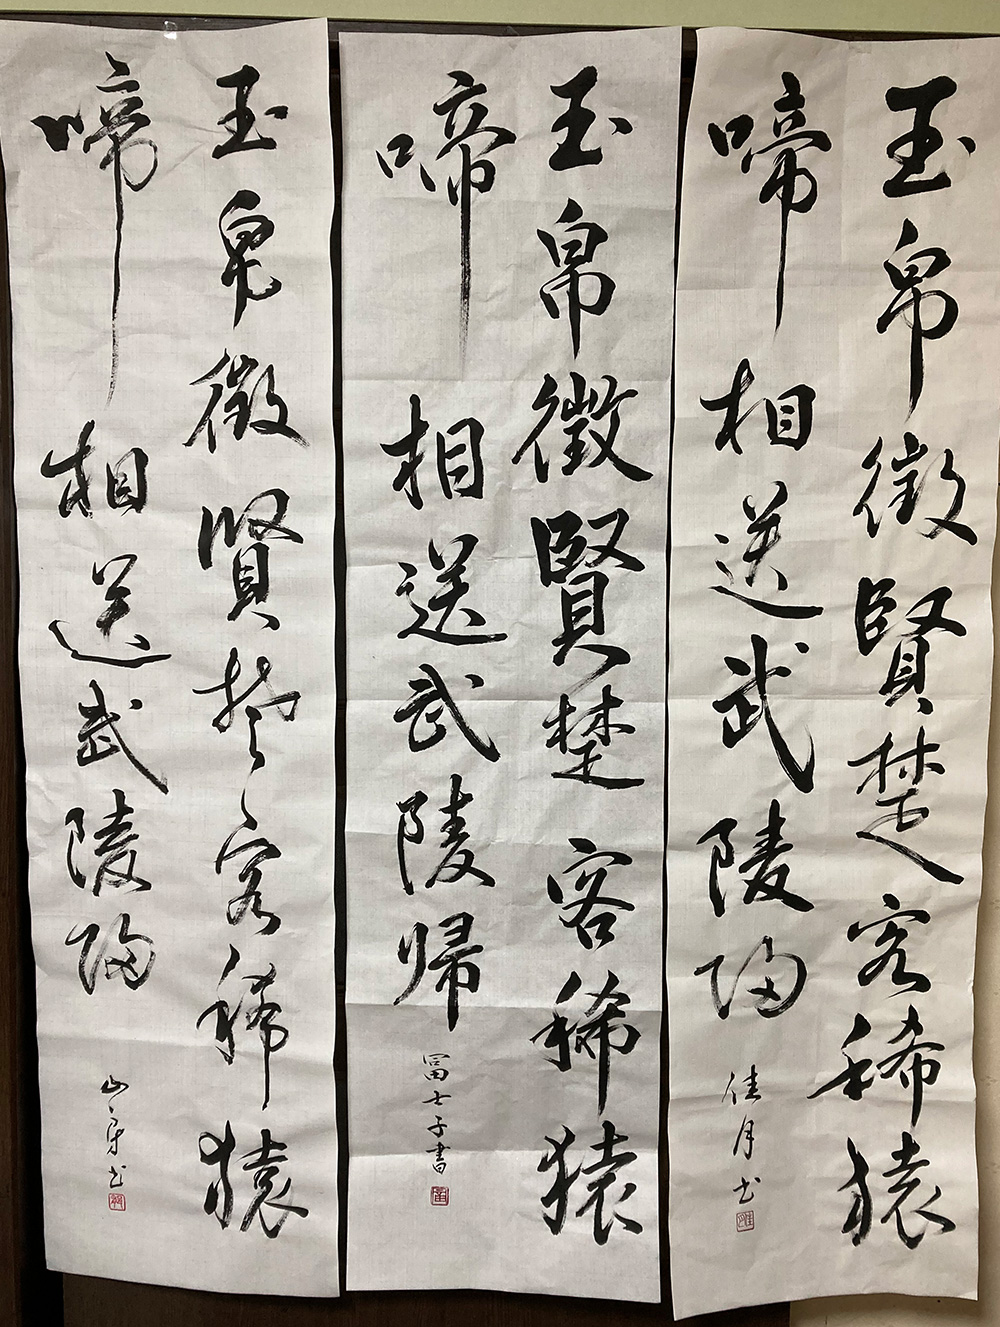 玉帛徴賢楚客稀猿
啼相送武陵帰
佳月書
玉帛徴賢楚客稀猿
啼相送武陵帰
冨士子書
玉帛徴賢楚客稀猿
啼相送武陵帰
書